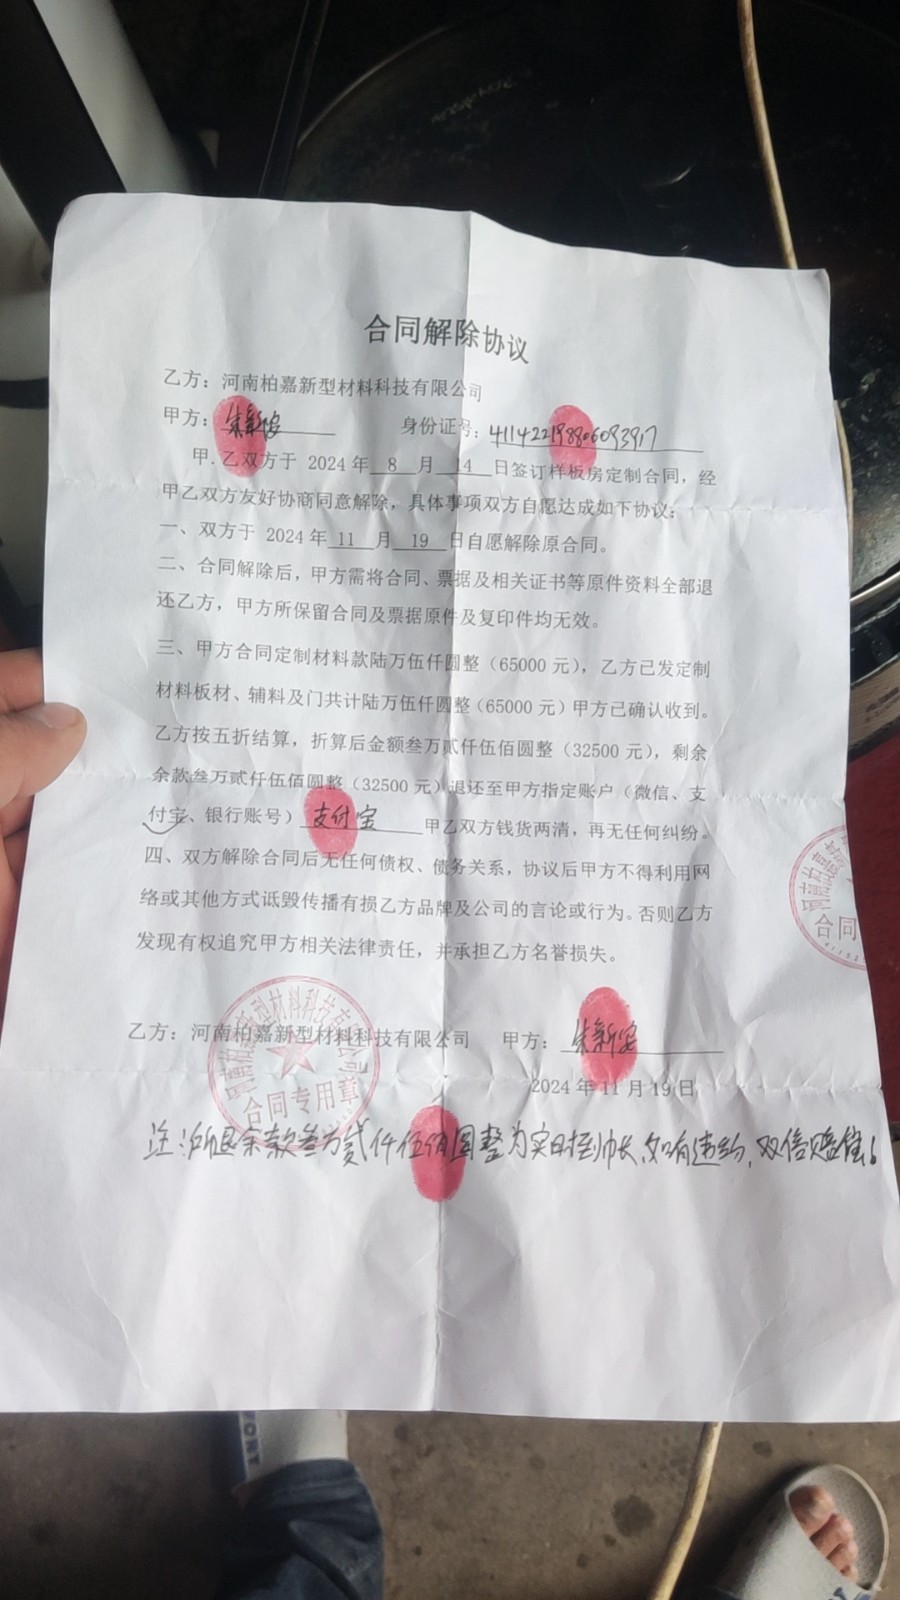 合同解除协议
乙方：河南柏嘉新型材料科技有限公司
甲方：朱新安 身份证号：411422198806093917
甲.乙双方于 2024 年 8 月 14 日签订样板房定制合同，经
甲乙双方友好协商同意解除，具体事项双方自愿达成如下协议：
一、双方于 2024 年 11 月 19 日自愿解除原合同。
二、合同解除后，甲方需将合同、票据及相关证书等原件资料全部退
还乙方，甲方所保留合同及票据原件及复印件均无效。
三、甲方合同定制材料款陆万伍仟圆整（65000 元），乙方已发定制
材料板材、辅料及门共计陆万伍仟圆整（65000 元）甲方已确认收到。
乙方按五折结算，折算后金额叁万贰仟伍佰圆整（32500 元），剩余
余款叁万贰仟伍佰圆整（32500 元）退还至甲方指定账户（微信、支
付宝、银行账号）支付宝 甲乙双方钱货两清，再无任何纠纷。
四、双方解除合同后无任何债权、债务关系，协议后甲方不得利用网
络或其他方式诋毁传播有损乙方品牌及公司的言论或行为。否则乙方
发现有权追究甲方相关法律责任，并承担乙方名誉损失。
合同
乙方：河南柏嘉新型材料科技有限公司 甲方：朱新安
合同专用章
2024 年 11 月 19 日
注：所退余款叁万贰仟伍佰圆整为实日到帐，如有违约，双倍赔偿。